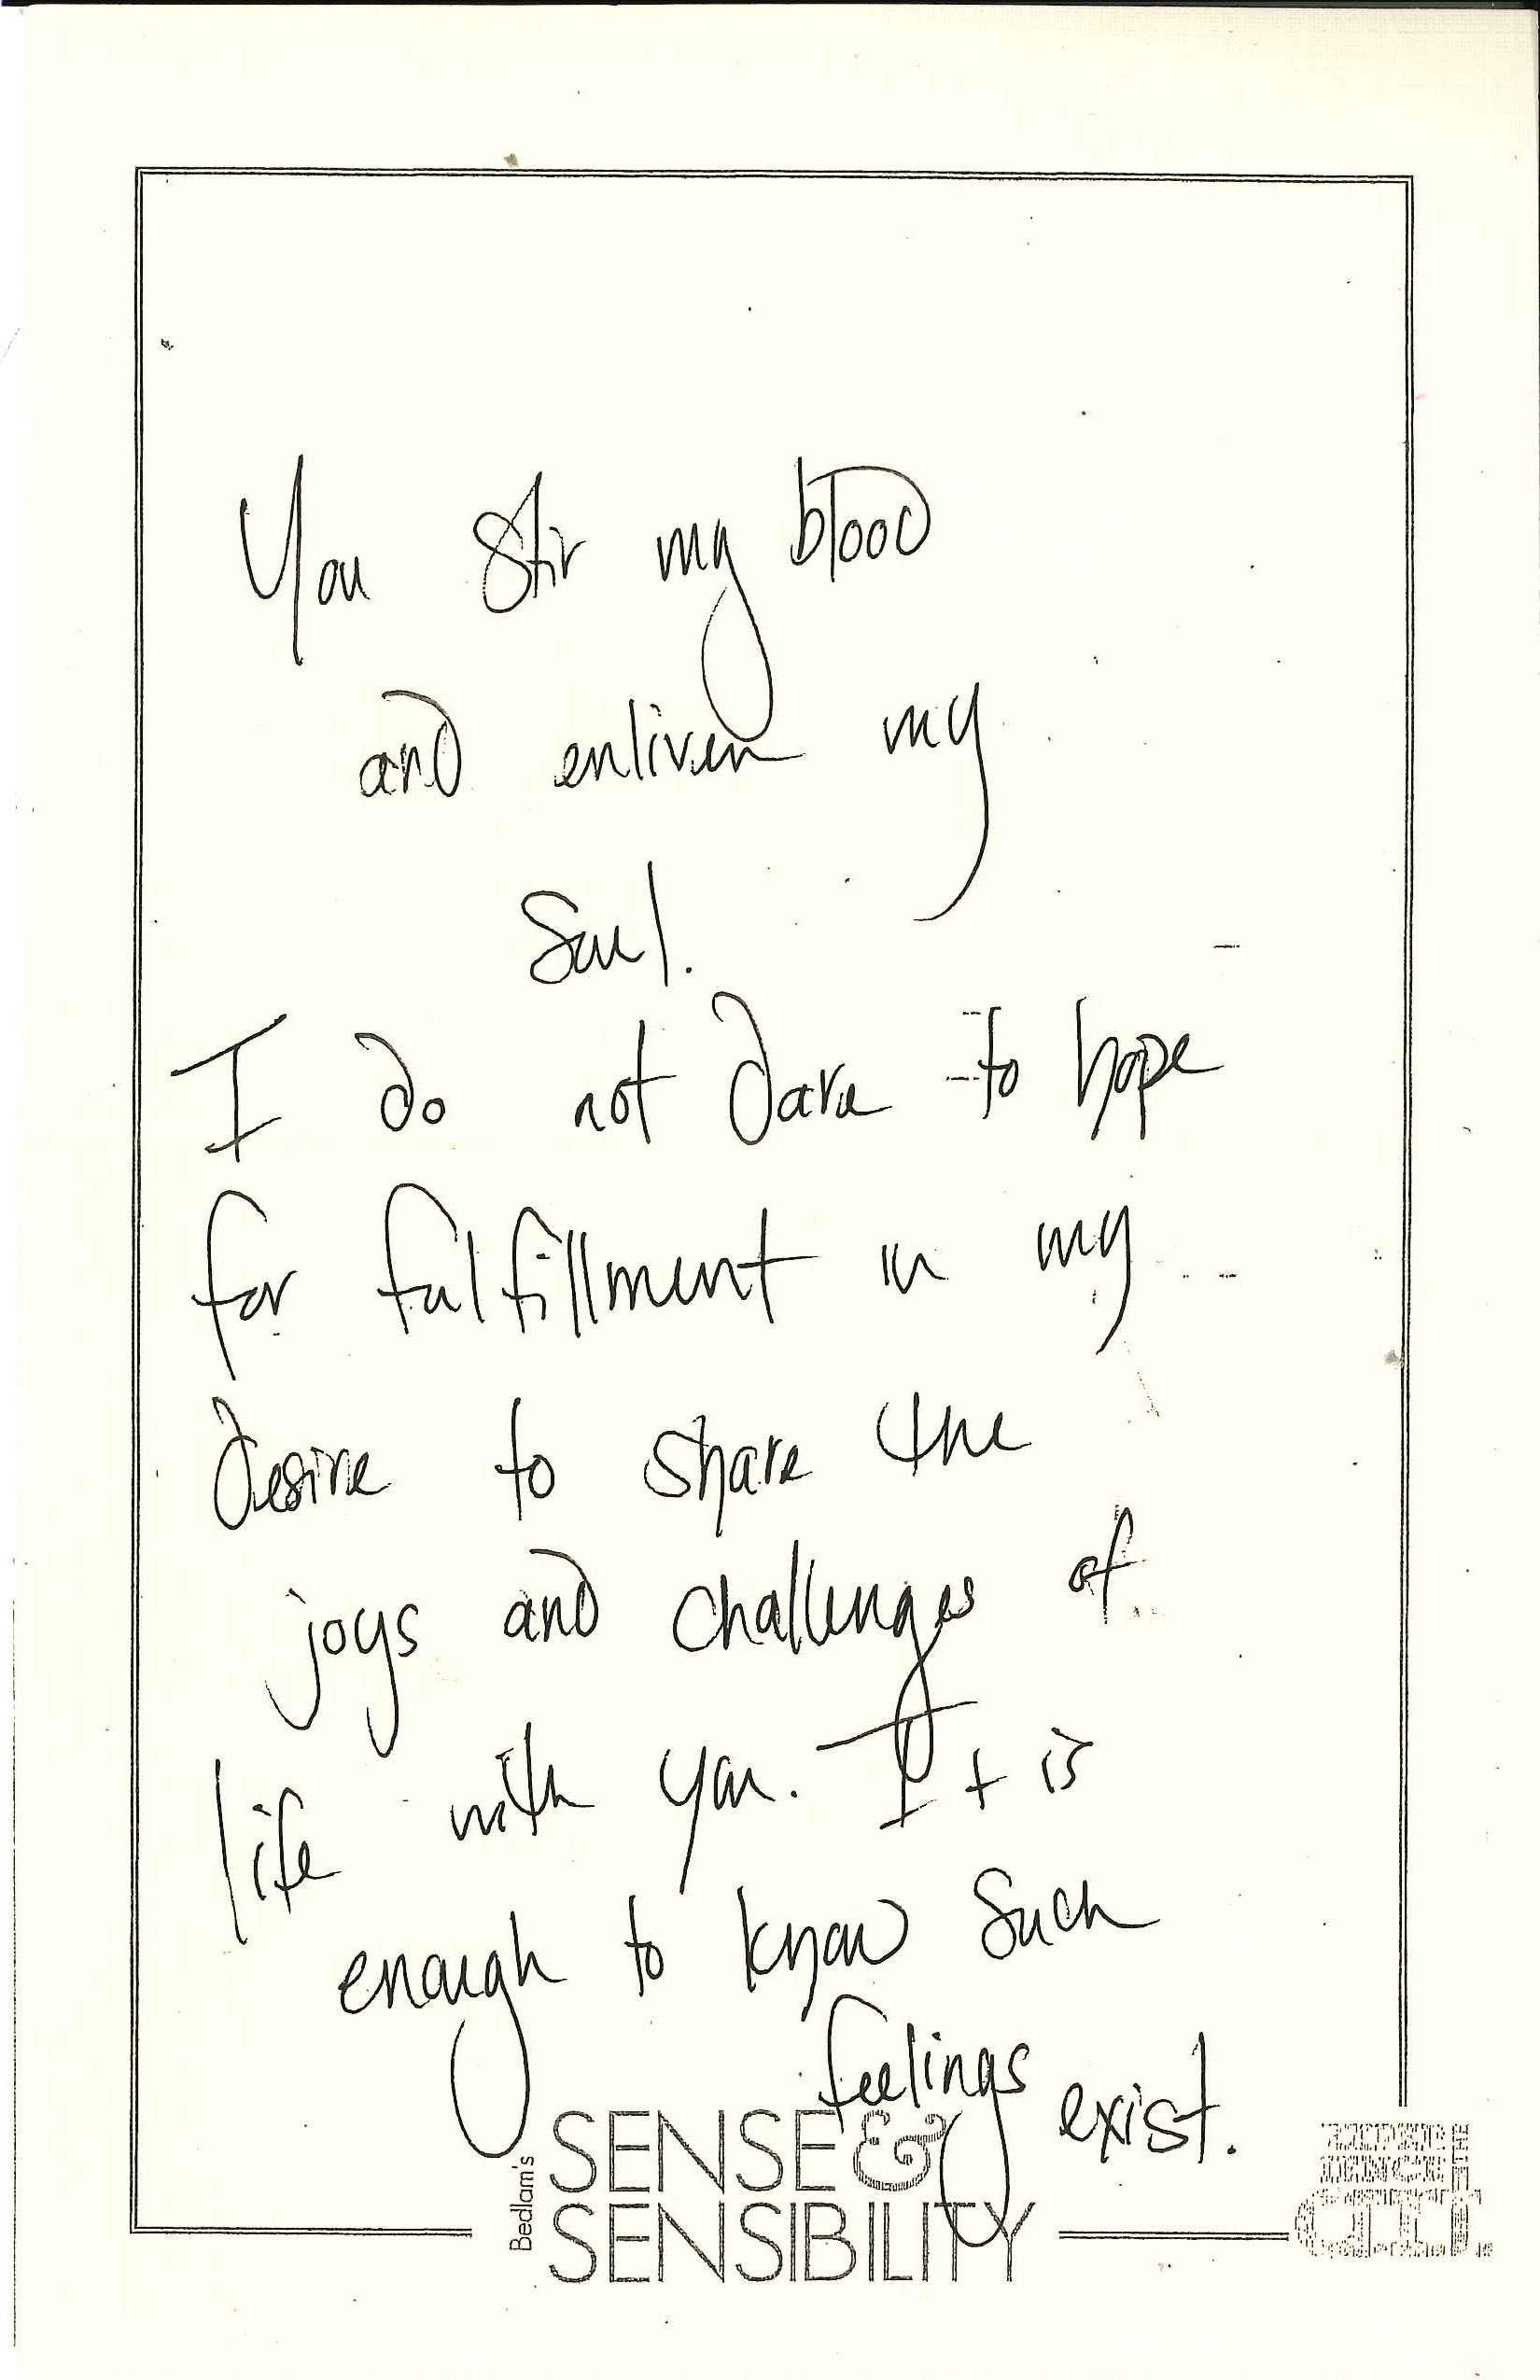 You stir my blood
and enliven my
soul.
I do not dare to hope
for fulfillment in my
desire to share the
joys and challenges of
life with you. It is
enough to know such
feelings exist.
Bedlam's
SENSE &
SENSIBILITY